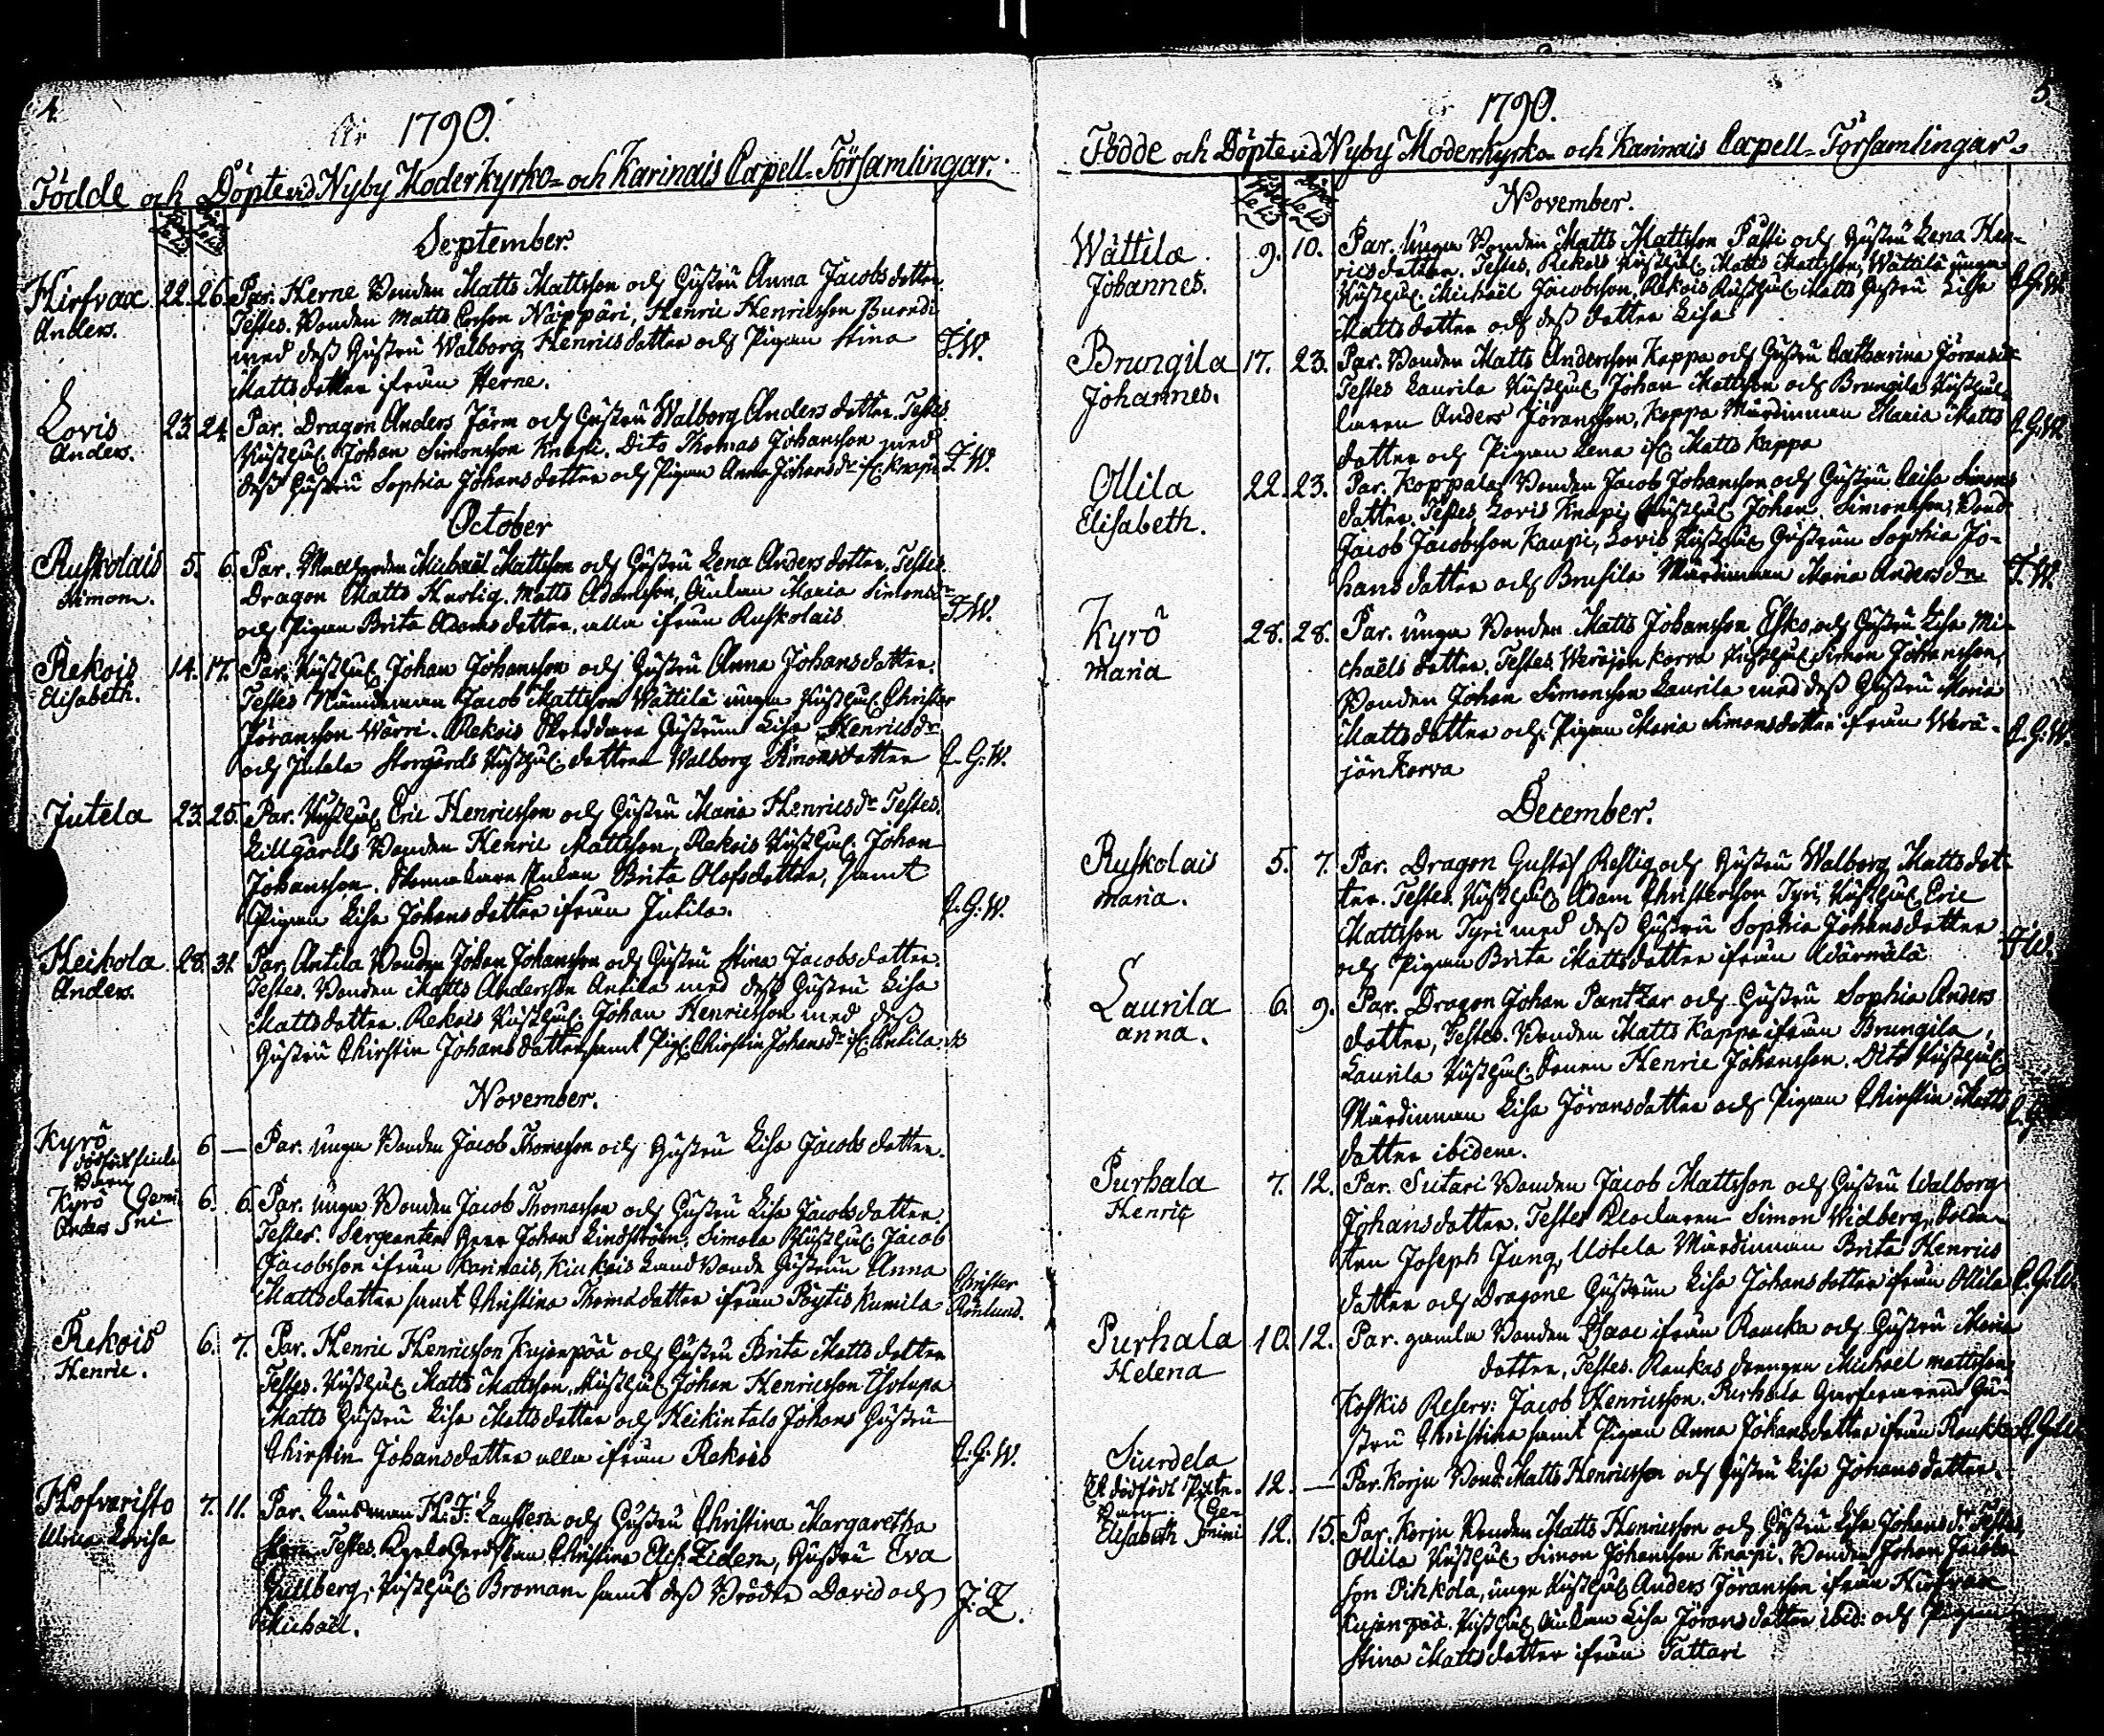 4.
År 1790.
Födde och Döpte vid Nyby Moderkyrko- och Karinais Capell-Församlingar.
September.
Hirfvax 22. 26. Par. Herne Bonden Matts Mattsson och Hustru Anna Jacobsdotter.
Anders. Testes. Bonden Matts Ersson Näppäri, Henric Henricsson
med dess Hustru Walborg Henricsdotter och Pigan Stina J.W.
Mattsdotter ifrån Herne.
Lovis 23. 24. Par. Dragon Anders Järn och Hustru Walborg Andersdotter. Testes
Anders. Rusth. Johan Simonsson Knapi. Dito Thomas Johansson med
dess Hustru Sophia Johansdotter och Pigan Anna Johansdr ifr. Knapi J.W.
October
Ruskolais 5. 6. Par. Michaël Mattsson och Hustru Lena Andersdotter, Testes.
Simon. Dragon Matts Hurtig. Matts Adamsson, Änkan Maria Simonsdr
och Pigan Brita Adamsdotter, alla ifrån Ruskolais J.W.
Rekois 14. 17. Par. Rusth. Johan Johansson och Hustru Anna Johansdotter.
Elisabeth. Testes Nämdeman Jacob Mattsson Wättilä unga Rusth. Christer
Jöransson Wärri. Rekois Skräddare Hustrun Lisa Henricsdr
och Jutela Storgårds Rusth. dotter Walborg Simonsdotter C.G.W.
Jutela 23. 25. Par. Rusth. Eric Henricsson och Hustru Maria Henricsdr Testes.
Lillgårds Bonden Henric Mattsson, Rekois Rusth. Johan
Johansson. Änkan Brita Olofsdotter, samt
Pigan Lisa Johansdotter ifrån Jutila. C.G.W.
Heikola 28. 31. Par. Antila Bonden Johan Johansson och Hustru Stina Jacobsdotter.
Anders. Testes. Bonden Matts Andersson Antila med dess Hustru Lisa
Mattsdotter. Rekois Rusth. Johan Henricsson med dess
Hustru Christin Johansdotter samt Pig. Christin Johansdr ifr. Antila
November.
Kyrö 6 — Par. unga Bonden Jacob Thomasson och Hustru Lisa Jacobsdotter.
dödfödt
Barn
Kyrö Gemi- 6. 6 Par. unga Bonden Jacob Thomasson och Hustru Lisa Jacobsdotter.
Anders ni Testes. Sergeanten Herr Johan Lindström, Simola Rusth. Jacob
Jacobsson ifrån Karinais, Kiukois Landbonde Hustrun Anna
Mattsdotter samt Christina Thomædotter ifrån Pöytis Kumila Christer Rönlund.
Rekois 6. 7. Par. Henric Henricsson Kujanpää och Hustru Brita Mattsdotter
Henric. Testes. Rusth. Matts Mattsson, Rusth. Johan Henricsson
Matts Hustru Lisa Mattsdotter och Heikintalo Johans Hustru
Christin Johansdotter alla ifrån Rekois C.G.W.
Hofvaristo 7. 11. Par. Länsman H.J. Laustern och Hustru Christina Margaretha
Ulrica Lovisa Testes. Christina Elis. Zidern, Hustru Eva
Gullberg, Rusth. Broman samt dess Bröder David och J.Z.
Michaël.
5
År 1790.
Födde och Döpte vid Nyby Moderkyrko- och Karinais Capell-Församlingar.
November.
Wättilä 9. 10. Par. Unga Bonden Matts Mattsson Passi och Hustru Lena Hen-
Johannes. ricsdotter. Testes, Rekois Rusth. Matts Mattsson, Wättilä unga
Rusth. Michaël Jacobsson, Rekois Rusth. Matts Hustru Lisa C.G.W.
Mattsdotter och dess dotter Lisa
Brungila 17. 23. Par. Bonden Matts Andersson Kappa och Hustru Catharina Jöransdr
Johannes. Testes Laurila Rusth. Johan Mattsson och Brungila Rusthål-
laren Anders Jöransson, Kappa Wärdinnan Maria Matts C.G.W.
dotter och Pigan Lena ifr. Matts Kappa
Ollila 22. 23. Par. Koppala Bonden Jacob Johansson och Hustru Caisa Simons
Elisabeth. dotter. Testes Lovis Knapi Rusth. Johan Simonsson, Bond.
Jacob Jacobsson Kaupi, Lovis Rusth. Hustrun Sophia Jo-
hansdotter och Brusila Wärdinnan Maria Andersdr J.W.
Kyrö 28. 28. Par. unga Bonden Matts Johansson Esko och Hustru Lisa Mi-
Maria chaëlsdotter. Testes, Weräjänkorva Rusth. Simon Johansson,
Bonden Johan Simonsson Laurila med dess Hustru Maria
Mattsdotter och Pigan Maria Simonsdotter ifrån Werä- C.G.W.
jänkorva
December.
Ruskolais 5. 7. Par. Dragon Gustaf Resslig och Hustru Walborg Mattsdot-
Maria. ter. Testes. Rusth. Adam Christersson Tyri, Rusth. Eric
Mattsson Tyri med dess Hustru Sophia Johansdotter
och Pigan Brita Mattsdotter ifrån J.W.
Laurila 6. 9. Par. Dragon Johan Pantzar och Hustru Sophia Anders
Anna. dotter, Testes. Bonden Matts Kappa ifrån Brungila,
Laurila Rusth. Sonen Henric Johansson. Dito Rusth.
Wärdinnan Lisa Jöransdotter och Pigan Christin Matts C.G.
dotter ibidem.
Purhala 7. 12. Par. Sutari Bonden Jacob Mattsson och Hustru Walborg
Henric Johansdotter. Testes Klockaren Simon Widberg, Solda-
ten Joseph Jung, Uotela Wärdinnan Brita Henrics
dotter och Dragone Hustrun Lisa Johansdotter ifrån Ollila C.G.W.
Purhala 10. 12. Par. gamla Bonden Isaac ifrån Raucka och Hustru Maria
Helena dotter, Testes. Raukas drengen Michaël Mattsson,
Koskis Reserv: Jacob Henricsson. Purhala Hu-
stru Christina samt Pigan Anna Johansdotter ifrån Raukka C.G.W.
Siurdela
Et dödfödt 12. — Par. Korju Bond. Matts Henricsson och Hustru Lisa Johansdotter.
Barn Ge-
Elisabeth mini 12. 15. Par. Korju Bonden Matts Henricsson och Hustru Lisa Johansdr Testes
Ollila Rusth. Simon Johansson Knapi. Bonden Johan Jacobs-
son Pihkola, unga Rusth. Anders Jöransson ifrån Hirfvax
Kujanpää. Rusth. Änkan Lisa Jöransdotter ibid: och Pigan
Stina Mattsdotter ifrån Tattari